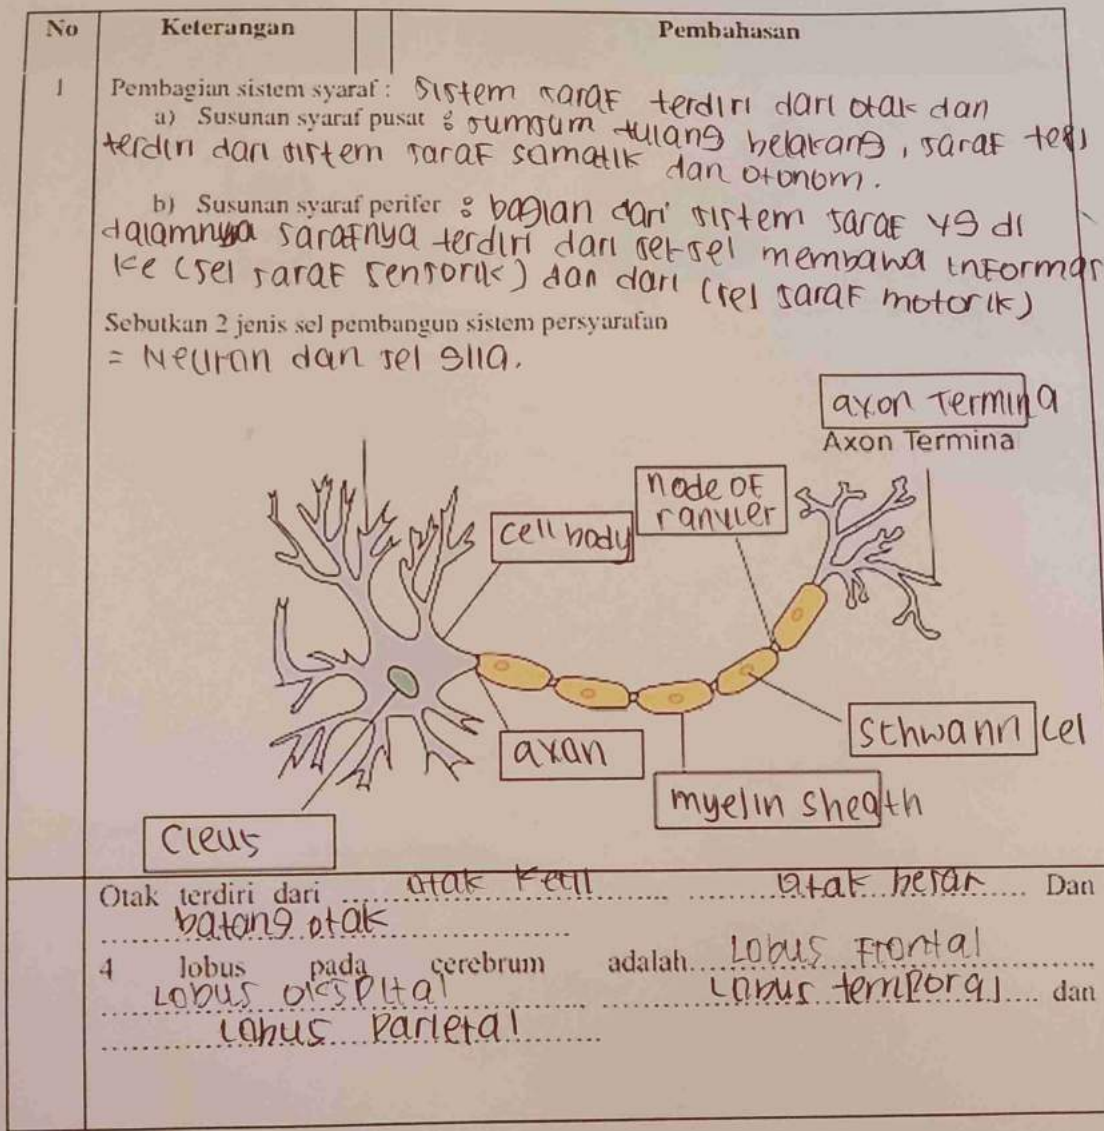 No Keterangan Pembahasan
1 Pembagian sistem syaraf : Sistem saraf terdiri dari otak dan
a) Susunan syaraf pusat : sumsum tulang belakang, saraf tepi
terdiri dari sistem saraf samatik dan otonom.
b) Susunan syaraf perifer : bagian dari sistem saraf yg di
dalamnya sarafnya terdiri dari sel-sel membawa informasi
ke (sel saraf sensorik) dan dari (sel saraf motorik)
Sebutkan 2 jenis sel pembangun sistem persyarafan
= Neuron dan sel glia.
axon Termina
Axon Termina
node of
ranvier
cell body
Schwann cel
axan
myelin sheath
Cleus
Otak terdiri dari otak kecil otak besar Dan
batang otak
4 lobus pada cerebrum adalah Lobus Frontal
Lobus oksipital Lobus temporal dan
Lobus Parietal